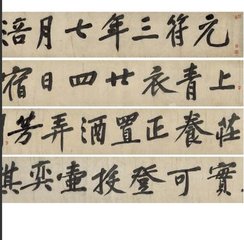 元符三年七月涪
上青衣廿四日宿
莊養正置酒弄芳
實可登投壺弈棋